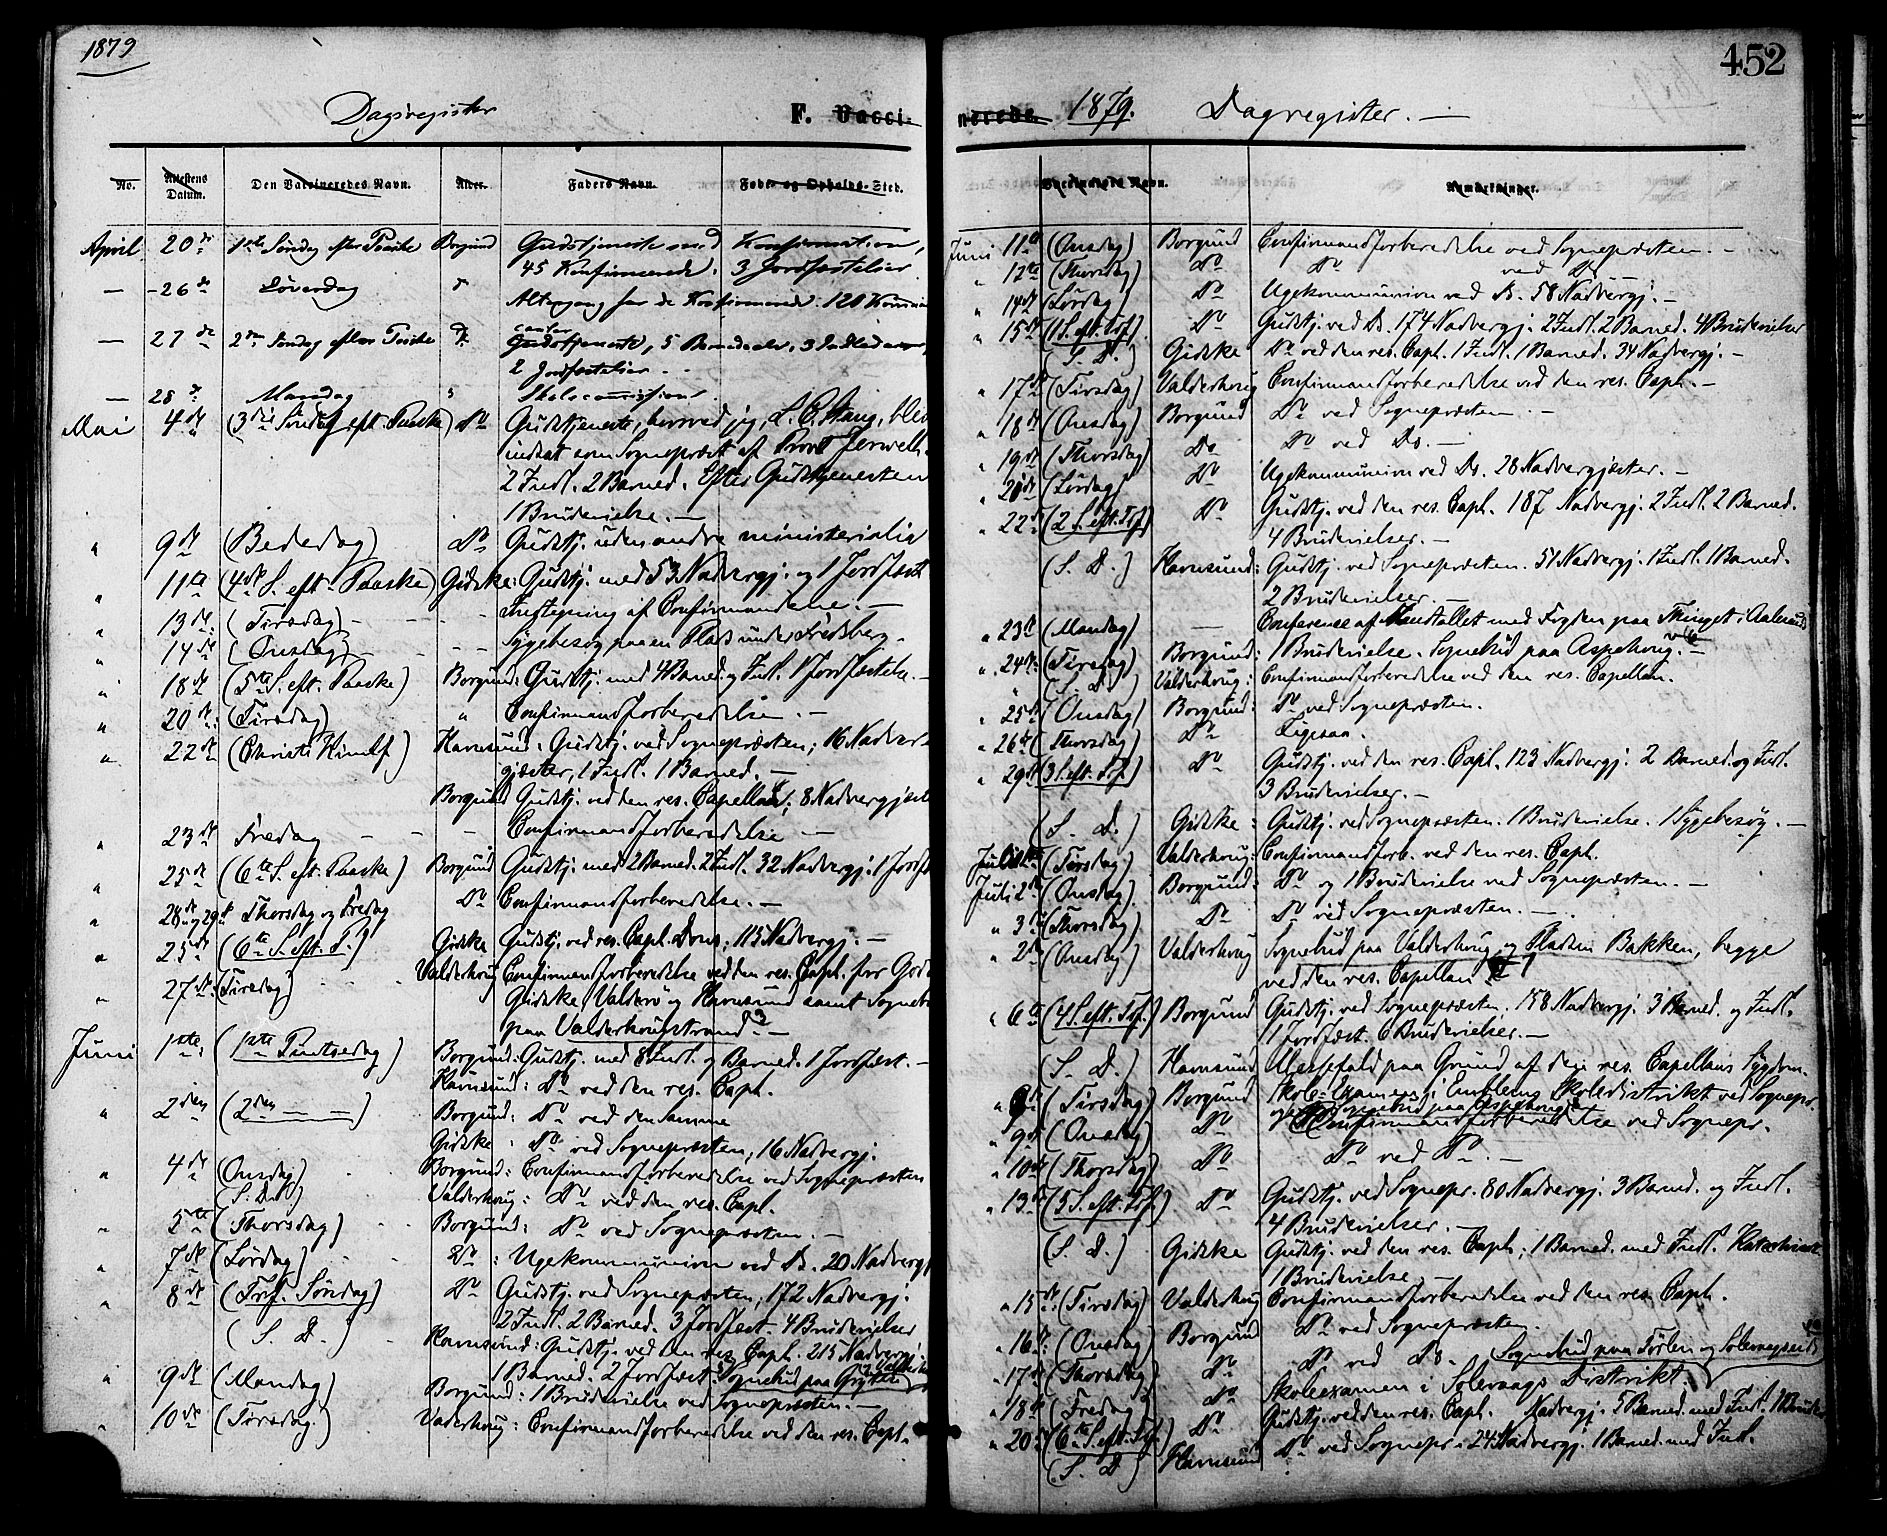 1879
452
Dagsregister F. Vacci-
nerede. 1879. Dagregister. —
No. Attestens Datum. Den Vaccineredes Navn. Alder. Faders Navn. Føde- og Opholds-Sted.
April 20de 1ste Søndag efter Paaske Borgund Gudstjeneste med Konfirmation,
45 Konfirmerede. 3 Jordfæstelser
— 26de Løverdag Altergang for de Konfirmerede. 120
— 27de 2den Søndag efter Paaske Do Gudstjeneste, 5 Barnedaab, 3
2 Jordfæstelser.
— 28de Mandag Skolecommission.
Mai 4de (3die Søndag eft. Paaske) Do Gudstjeneste, hvorved jeg, blev
indsat som Sognepræst af Provst Jervell.
2 Indl. 2 Barned. Efter Gudstjenesten
1 Brudevielse. —
" 9de (Bededag) Do Gudstj. uden andre ministerialia
" 11te (4de S. eft. Paaske) Gidske: Gudstj. med 53 Nadvergj. og 1 Jordfæst
" 13de: (Tirsdag) — Indtegning af Confirmanderne. —
" 14de (Onsdag) — Sygebesøg paa en Plads under Fredsberg —
" 18de (5te S. eft. Paaske) Borgund: Gudstj. med 4 Barned. og Indl. 1 Jordfæstelse. —
" 20de: (Tirsdag) " Confirmandforberedelse. —
" 22de (Christi Himlf.) Havnsund: Gudstj. ved Sognepræsten; 16 Nadver-
gjæster, 1 Indl. 1 Barned. —
Borgund Gudstj. ved den res. Capellan; 8 Nadvergjæst
" 23de Fredag — Confirmandforberedelse —
" 25de (6te S. eft. Paaske) Borgund Gudstj. med 2 Barned. 2 Indl. 32 Nadvergj. 1 Jordf
" 28de og 29de Thorsdag og Fredag Do Confirmandforberedelse. —
" 25de (6te S. eft. P.) Gidske Gudstj. ved res. Capl. Dons; 115 Nadvergj. —
" 27de: (Tirsdag) Valderhoug Confirmandforberedelse ved den res. Capl. for
Gidske, Valderø og Havnsund samt Sogneb
paa Valderhougstrand —
Juni 1ste: (1ste Pintsedag) Borgund: Gudstj. med 8 Indl. og Barned. 1 Jordfæst. —
Havnsund: Do ved den res. Capl.
" 2den (2den — —) Borgund: Do ved den samme
Gidske: Do ved Sognepræsten, 16 Nadvergj.
" 4de (Onsdag) Borgund: Confirmandforberedelse ved Sognepræsten
(S. D.) Valderhoug: Do ved den res. Capl.
" 5te (Thorsdag) Borgund: Do ved Sognepræsten. —
" 7de (Lørdag) Do: Ugekommunion ved Do. 20 Nadvergj
" 8de (Trf. Søndag) Do Gudstj. ved Sognepræsten, 172 Nadvergj.
2 Indl. 2 Barned. 3 Jordfæst. 4 Brudevielser
(S. D.) Havnsund: Gudstj. ved den res. Capl. 215 Nadvergj.
1 Barned. 2 Jordfæst. Sognebud paa
" 9de (Mandag) Borgund: 1 Brudevielse ved Sognepræsten. —
" 10de (Tirsdag) Valderhoug: Confirmandforberedelse ved den res. Capl. —
Vaccinatørens Navn. Anmærkninger.
Juni 11te (Onsdag) Borgund Confirmandforberedelse ved Sognepræsten. —
" 12te (Thorsdag) Do Do ved Do
" 14de (Lørdag) Do Ugekommunion ved Do. 58 Nadvergj. —
" 15de (1 S. eft. Trf.) Do Gudstj. ved Do. 174 Nadvergj. 2 Indl. 2 Barned. 4 Brudevielser
(S. D.) Gidske Do ved den res. Capl. 1 Indl. 1 Barned. 34 Nadvergj. —
" 17de (Tirsdag) Valderhoug Confirmandforberedelse ved den res. Capl. —
" 18de (Onsdag) Borgund Do ved Sognepræsten. —
" 19de (Thorsdag) Do Do ved Do. —
" 20de (Lørdag) Do Ugekommunion ved Do. 28 Nadvergjæster. —
" 22de (2 S. eft. Trf) Do Gudstj. ved den res. Capl. 187 Nadvergj. 2 Indl. 2 Barned.
4 Brudevielser. —
(S. D.) Havnsund: Gudstj. ved Sognepræsten. 51 Nadvergj. 1 Indl. 1 Barned.
2 Brudevielser. —
" 23de (Mandag) — Conference af Mandtallet med Fogden paa Thinget i Aalesund
" 24de: (Tirsdag) Borgund: 1 Brudevielse. Sognebud paa Aspehoug. —
" (S. D.) Valderhoug: Confirmandforberedelse ved den res. Capellan.
" 25de (Onsdag) Borgund: Do ved Sognepræsten.
" 26de (Thorsdag) Do Ligesaa.
" 29de (3 S. eft. Trf.) Do Gudstj. ved den res. Capl. 123 Nadvergj. 2 Barned. og Indl.
3 Brudevielser. —
(S. D.) Gidske: Gudstj. ved Sognepræsten. 1 Brudevielse. 1 Sygebesøg. —
Juli 1ste (Tirsdag) Valderhoug: Confirmandforb. ved den res. Capl.
Juli 2de (Onsdag) Borgund: Do og 1 Brudevielse ved Sognepræsten. —
" 3de (Thorsdag) Do Do ved Sognepræsten. —
" 2de (Onsdag) Valderhoug Sognebud paa Valderhoug og Pladsen Bakken, begge
ved den res. Capellan
" 6te (4 S. eft. Trf.) Borgund Gudstj. ved Sognepræsten. 158 Nadvergj. 3 Barned. og Indl.
1 Jordfæst. 6 Brudevielser. —
(S. D.) Havnsund Messefald paa Grund af den res. Capellans Sygdom.
" 8de (Tirsdag) Borgund Skole-Examen i Emblems Skoledistrikt ved Sognepr.
og Sognebud paa Aspehoug
" 9de (Onsdag) Do Confirmandforberedelse ved Sognepr.
" 10de (Thorsdag) Do Do ved Do. —
" 13de (5 S. eft. Trf.) Do Gudstj. ved Sognepr. 80 Nadvergj. 3 Barned. og Indl.
4 Brudevielser. —
(S. D.) Gidske Gudstj. ved den res. Capl.; 1 Barned. med Indl.
1 Brudevielse. —
" 15de. (Tirsdag) Valderhoug Confirmandforberedelse ved den res. Capl.
" 16de: (Onsdag) Borgund Do ved Sognepræsten.
" 17de (Thorsdag) Do Do ved Do. Sognebud paa og
" 18de (Fredag) Do Skoleexamen i Solevaags Distrikt.
" 20de (6te S. eft. Trf.) Do Gudstj. ved den res. Capl. Nadvergj. 5 Barned. med Indl. 1
(S. D) Havnsund Do ved Sognepr. 24 Nadvergj. 1 Barned. med Indl.